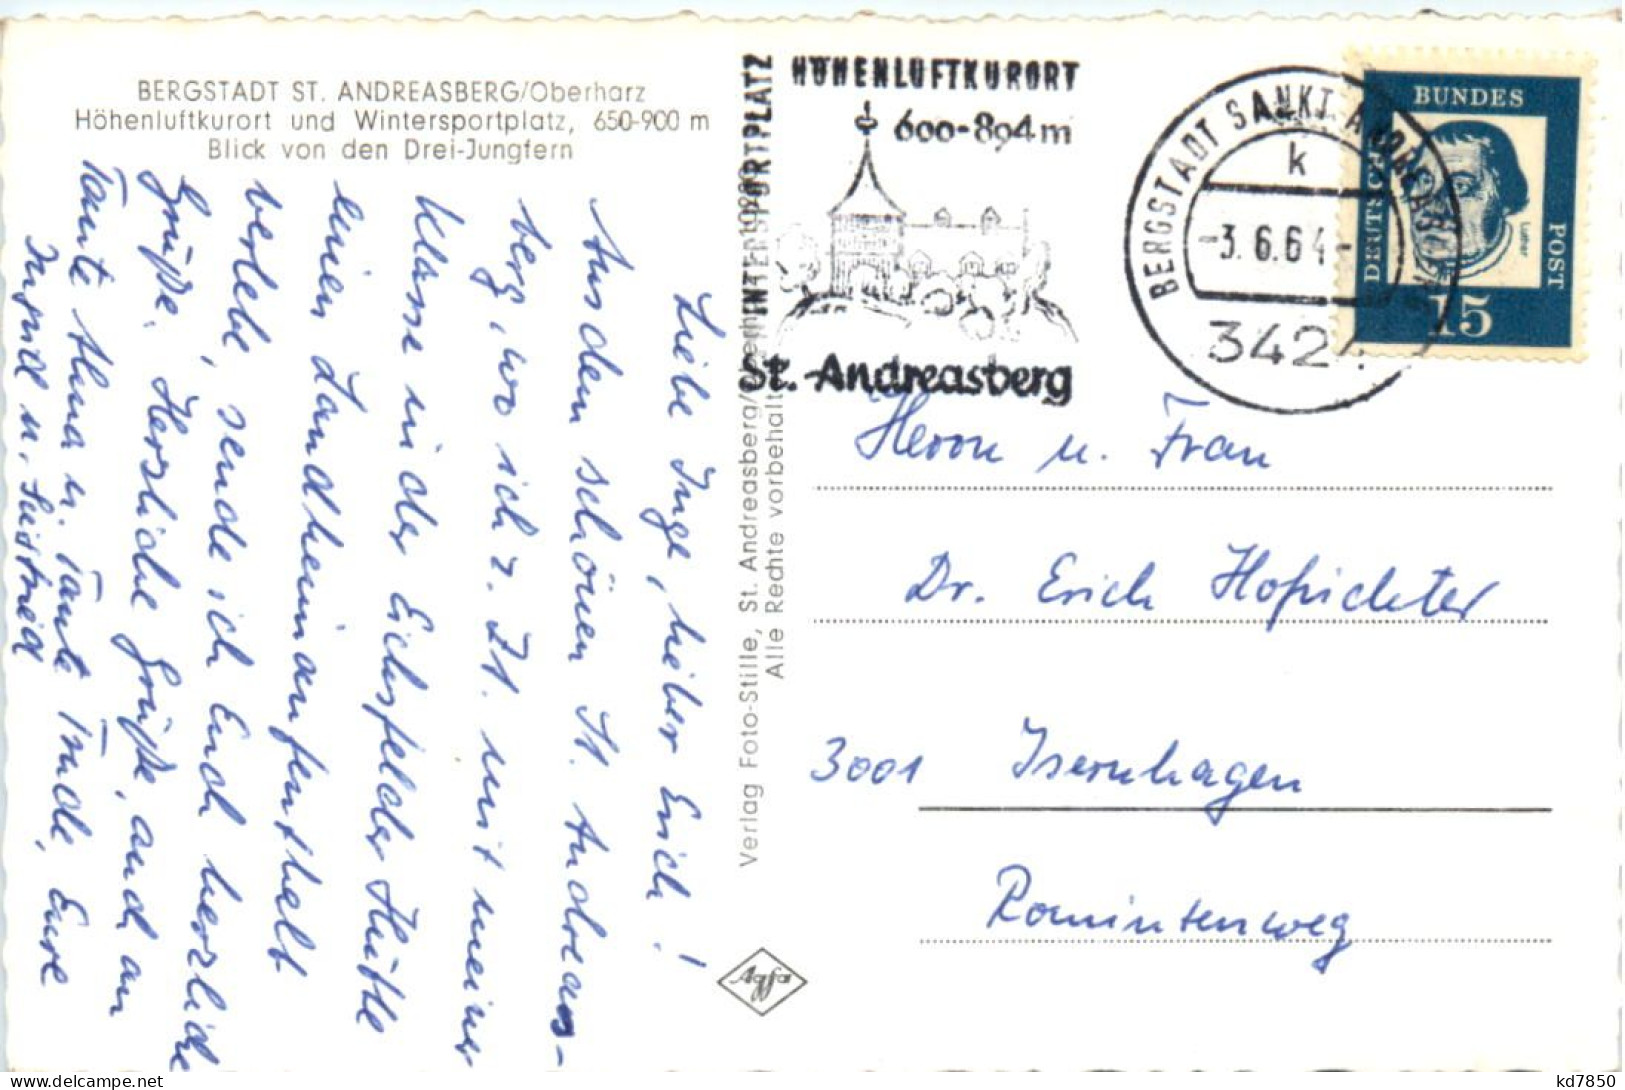 BERGSTADT ST. ANDREASBERG/Oberharz
Höhenluftkurort und Wintersportplatz, 650-900 m
Blick von den Drei-Jungfern
Liebe Inge, lieber Erich!
Aus dem schönen St. Andreas-
berg, wo ich z. Zt. mit meiner
Klasse in der Eichsfelder Hütte
einen Landheimaufenthalt
verlebe, sende ich Euch herzliche
Grüße. Herzliche Grüße, auch an
Tante Alma u. Tante Trude, Eure
Ingrid u.
Verlag Foto-Stille, St. Andreasberg/Oberharz
Alle Rechte vorbehalten
Agfa
WINTERSPORTPLATZ
HÖHENLUFTKURORT
600-894m
St. Andreasberg
BERGSTADT SANKT ANDREASBERG
k
-3.6.64-
342
DEUTSCHE
BUNDES
POST
Luther
15
Herrn u. Frau
Dr. Erich Hofrichter
3001 Isernhagen
Romintenweg
kd7850